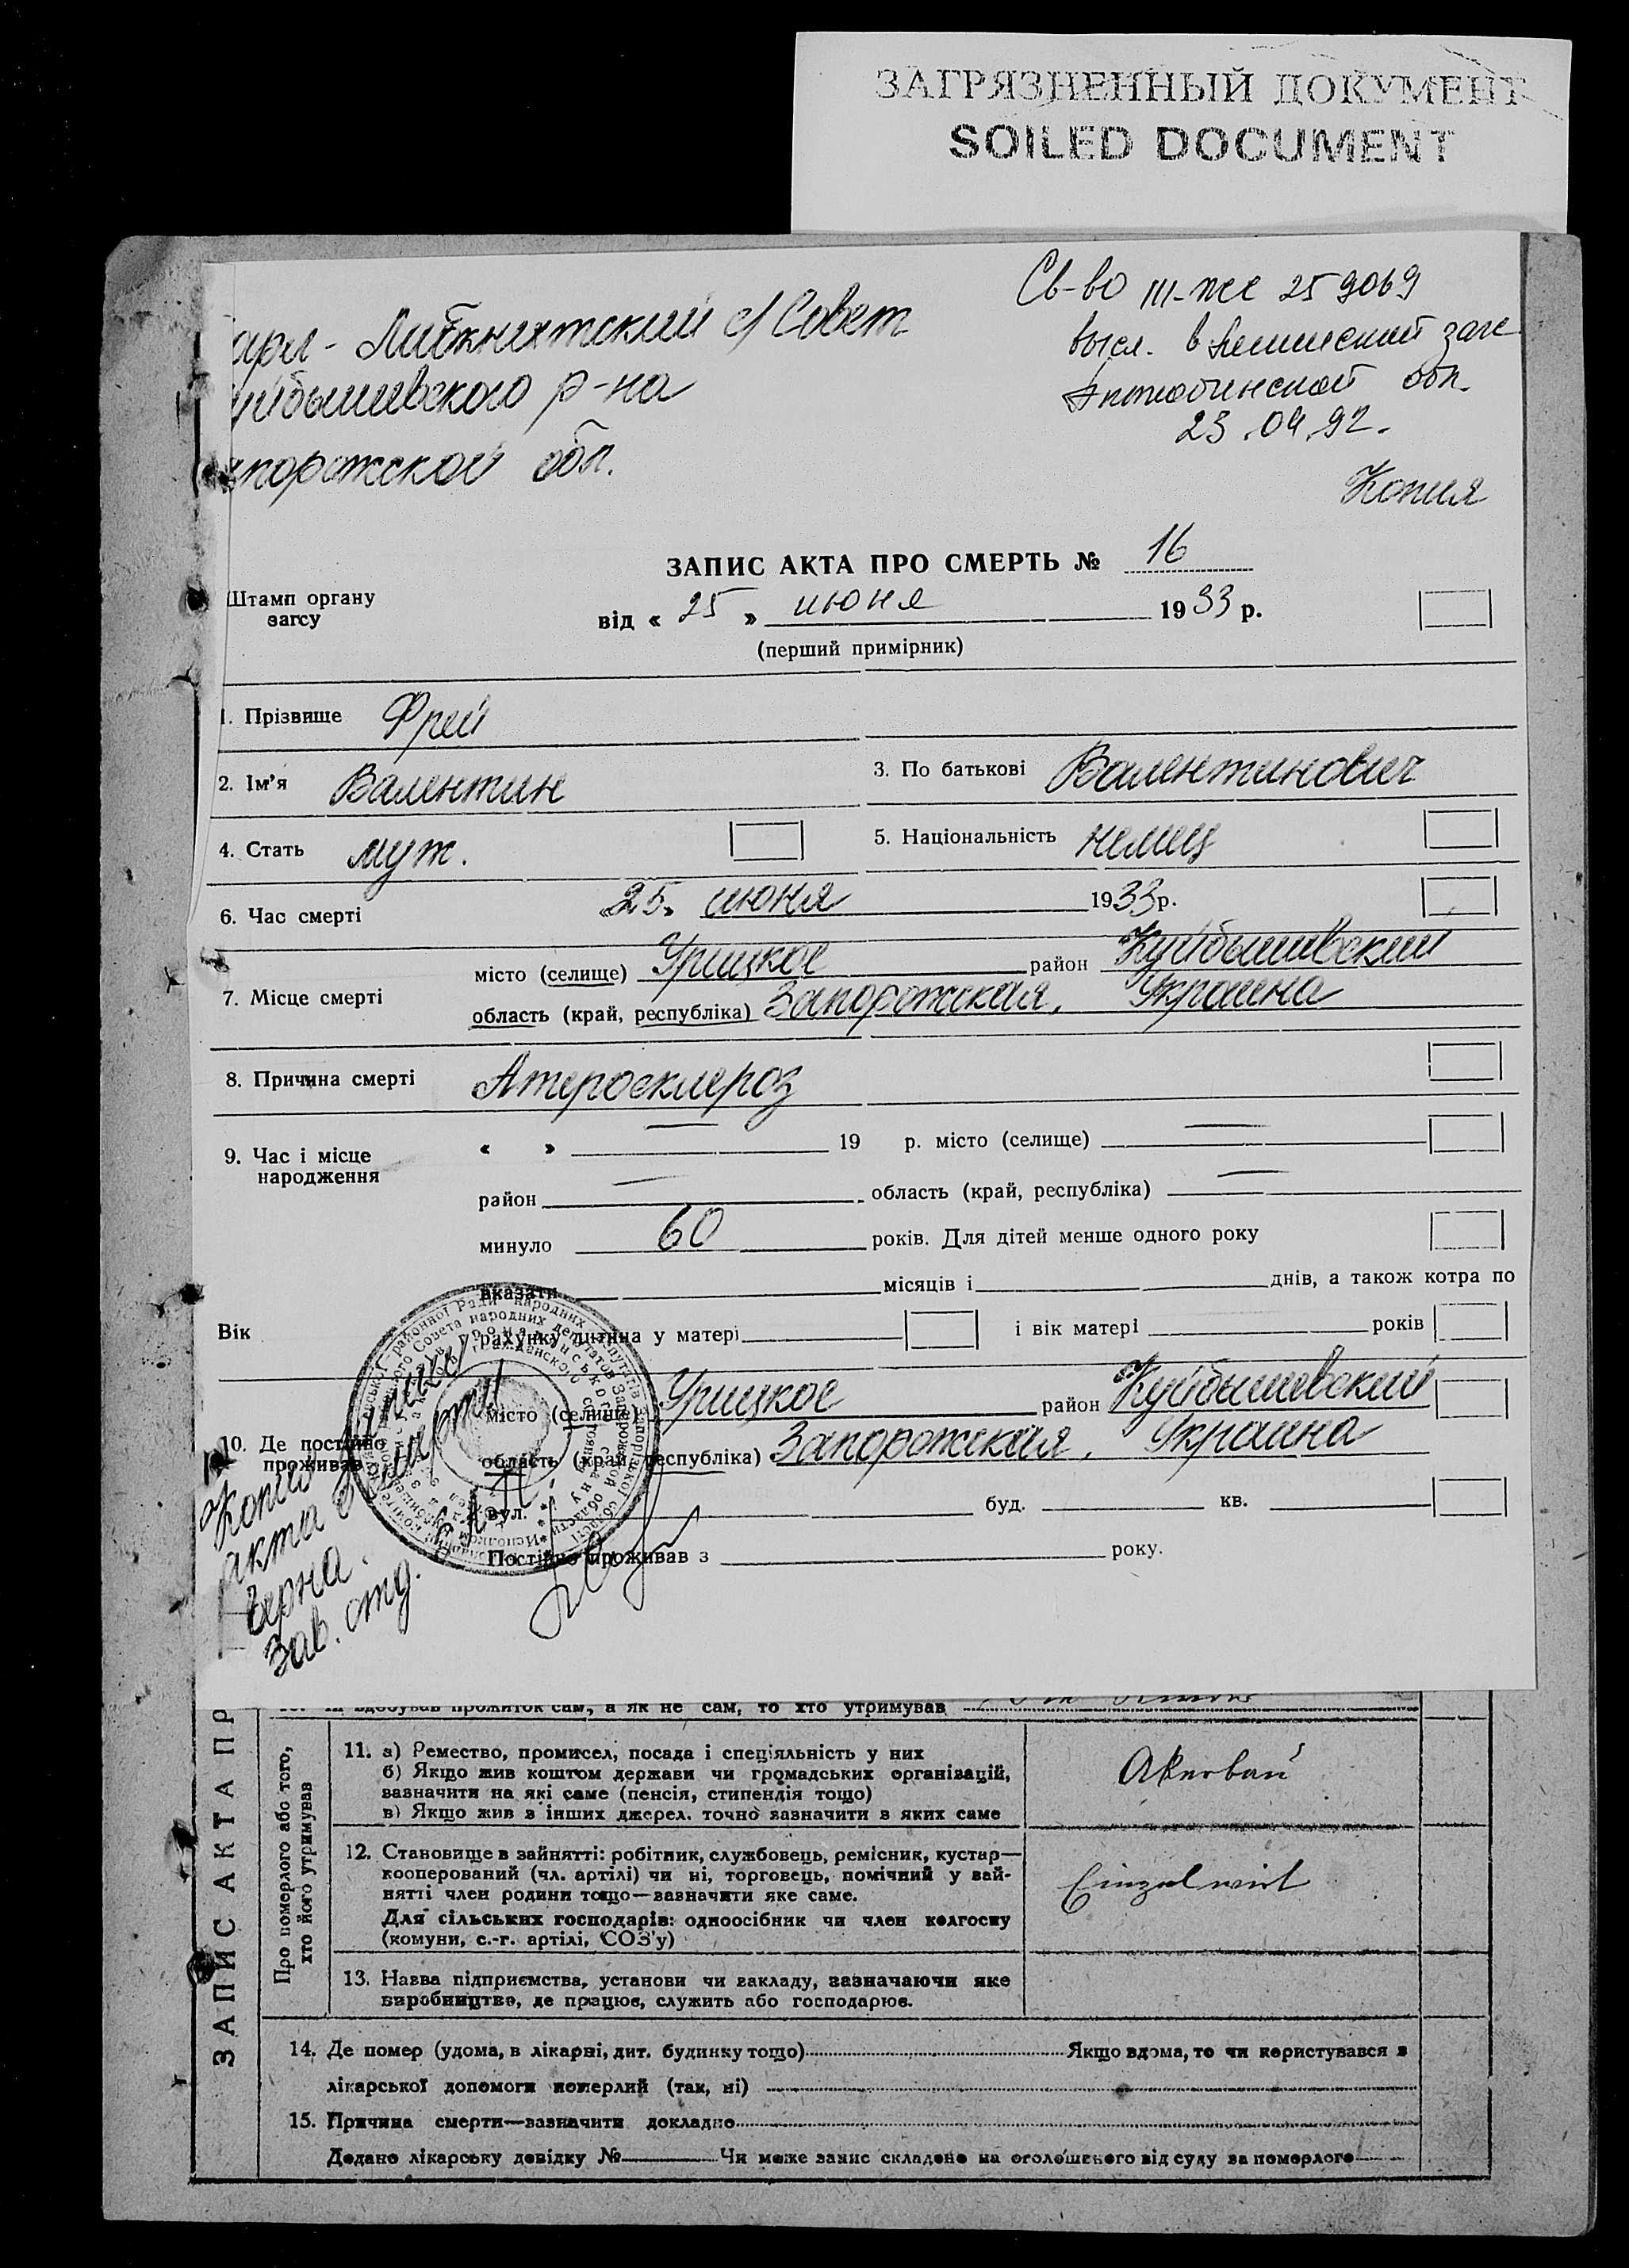 ЗАГРЯЗНЕННЫЙ ДОКУМЕНТ
SOILED DOCUMENT
Св-во III-ЖС 259069
высл. в Ленинский загс
Актюбинской обл.
23.04.92.
Копия
арл-Либкнихтский с/Совет
уйбышевского р-на
апорожской обл.
ЗАПИС АКТА ПРО СМЕРТЬ № 16
Штамп органу
загсу
від « 25 » июня 1933 р.
(перший примірник)
1. Прізвище Фрей
2. Ім'я Валентин 3. По батькові Валентинович
4. Стать муж. 5. Національність немец
6. Час смерті «25» июня 1933 р.
7. Місце смерті
місто (селище) Урицкое район Куйбышевский
область (край, республіка) Запорожская, Украина
8. Причина смерті Атеросклероз
9. Час і місце
народження
« » — 19 р. місто (селище) —
район — область (край, республіка) —
минуло 60 років. Для дітей менше одного року
вказати місяців і днів, а також котра по
Вік рахунку дитина у матері і вік матері років
10. Де постійно
проживав
місто (селище) Урицкое район Куйбышевский
область (край, республіка) Запорожская, Украина
вул. буд. кв.
Постійно проживав з року.
Копия
акта о смерти
верна.
Зав. отд.
сам, а як не сам, то хто утримував
ЗАПИС АКТА ПР
Про померлого або того,
хто його утримував
11. а) Ремество, промисел, посада і спеціяльність у них
б) Якщо жив коштом держави чи громадських організацій,
зазначити на які саме (пенсія, стипендія тощо)
в) Якщо жив з інших джерел. точно зазначити в яких саме
Akerbau
12. Становище в зайнятті: робітник, службовець, ремісник, кустар—
кооперований (чл. артілі) чи ні, торговець, помічний у зай-
нятті член родини тощо—зазначити яке саме.
Для сільських господарів: одноосібник чи член колгоспу
(комуни, с.-г. артілі, СОЗ'у)
Einzelwirt
13. Назва підприємства, установи чи закладу, зазначаючи яке
виробництво, де працює, служить або господарює.
14. Де помер (удома, в лікарні, дит. будинку тощо) Якщо вдома, то чи користувався з
лікарської допомоги померлий (так, ні)
15. Причина смерти—зазначити докладно
Додано лікарську довідку № Чи може запис складено на оголошеного від суду за померлого